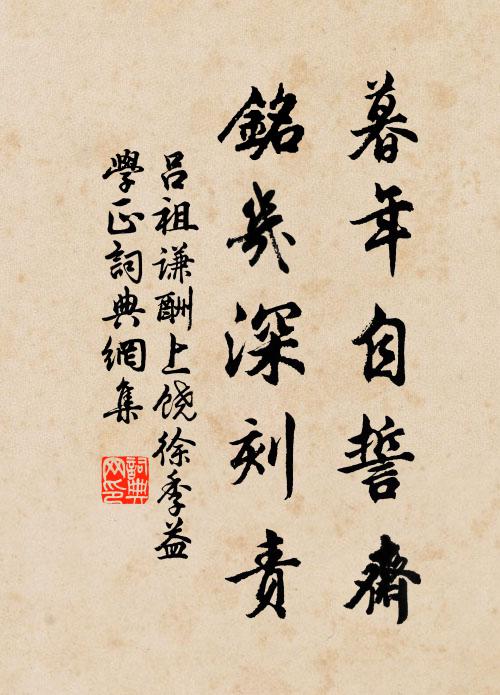 暮年自誓齋
銘幾深刻責
吕祖谦酬上饶徐季益
學正詞典網集
詞典网印